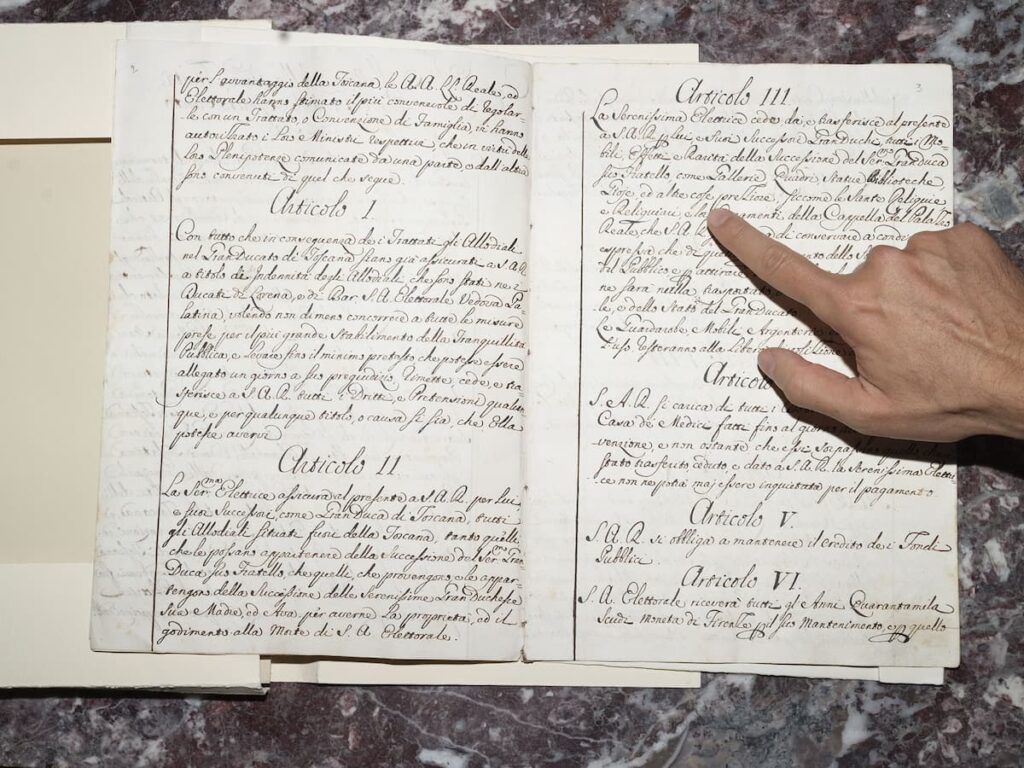 2
per l'avvantaggio della Toscana le A.A. LL. Reale, ed
Elettorale hanno stimato il più convenevole di regolar-
le con un Trattato, o Convenzione di Famiglia, vi hanno
autorizzato i Loro Ministri respettivi, che in virtù delle
loro Plenipotenze comunicate da una parte, e dall'altra
sono convenuti di quel che segue.
Articolo I
Con tutto che in conseguenza de i Trattati gli Allodiali
nel Gran Ducato di Toscana siano già assicurati a S.A.R.
a titolo di Indennità degli Allodiali che sono stati ne i
Ducati di Lorena, e di Bar, S.A. Elettorale Vedova Pa-
latina, volendo non di meno concorrere a tutte le misure
prese per il più grande Stabilimento della Tranquillità
Pubblica, e levare fino il minimo pretesto che potesse essere
allegato un giorno a suo pregiudizio, rimette, cede, e tra-
sferisce a S.A.R. tutti i Dritti, e Pretensioni qualun-
que, e per qualunque titolo, o causa si sia, che Ella
potesse avervi
Articolo II
La Ser.ma Elettrice assicura al presente a S.A.R. per lui,
e suoi Successori come Gran Duca di Toscana, tutti
gli Allodiali situati fuori della Toscana, tanto quelli
che le possano appartenere della Successione del Ser.mo Gran
Duca suo Fratello, che quelli, che provengono, e le appar-
tengono della Successione delle Serenissime Gran Duchesse
sue e Madre, ed Ava, per averne la proprietà, ed il
godimento alla Morte di S.A. Elettorale.
3
Articolo III
La Serenissima Elettrice cede, da, e trasferisce al presente
a S.A.R. p lui, e Suoi Successori Gran Duchi, tutti i Mo-
bili, Effetti e Rarità della Successione del Ser.mo Gran Duca
suo Fratello, come Gallerie, Quadri, Statue, Biblioteche,
Gioje, ed altre cose preziose, siccome le Sante Reliquie
e Reliquiari, e Ornamenti della Cappella del Palazzo
Reale, che S.A.R. di conservare a condi
espressa che di
del Pubblico e p attirare
ne sarà nulla trasportato
le, e dello Stato del Gran Ducato
Le Guardarobe, Mobili, Argenterie
uso resteranno alla libera disposizione
Articolo
S.A.R. si carica di tutti i
Casa de Medici fatti fino al giorno
venzione, e non ostante che essi
stato trasferito ceduto, e dato a S.A.R. la Serenissima Elettri
ce non ne potrà maj essere inquietata per il pagamento.
Articolo V.
S.A.R. si obbliga a mantenere il Credito de i Fondi
Pubblici.
Articolo VI
S.A. Elettorale riceverà tutti gl'Anni Quarantamila
Scudi moneta di Firenze p il suo Mantenimento, e p quello